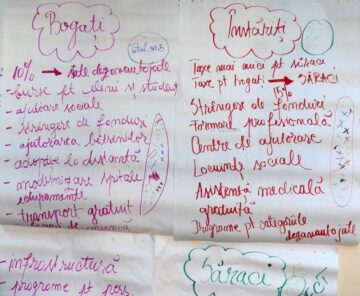 Bogați
10% → dezavantajate
- Burse pt elevi și studenți
- ajutoare sociale
- strângere de fonduri
- ajutorarea bătrânilor
- adopție la distanță
- modernizare spitale
echipamente
- transport gratuit
- infrastructură
- programe pt pers
Înstăriți
Taxe mai mici pt săraci
Taxe pt bogați → SĂRACI
5%
Strângere de fonduri
Formare profesională
Centre de ajutorare
Locuințe sociale
Asistență medicală
gratuită
Programe pt categoriile
dezavantajate
Săraci